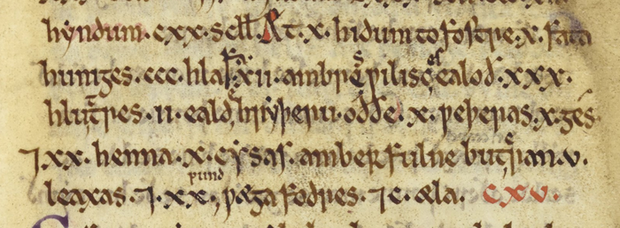 hyndum · cxx · scll̃. Æt · x · hidum to fostre · x · fata
huniges · ccc · hlafa · xii · ambre ƿilisces ealoð · xxx ·
hlut̃res · ii · ealde hryþeru · oððe · x · ƿeþeras · x · ges
⁊ xx · henna · x · cysas · amber fulne buteran · v ·
leaxas · ⁊ · xx · pund ƿæga fodres · ⁊ c · æla. cxv.